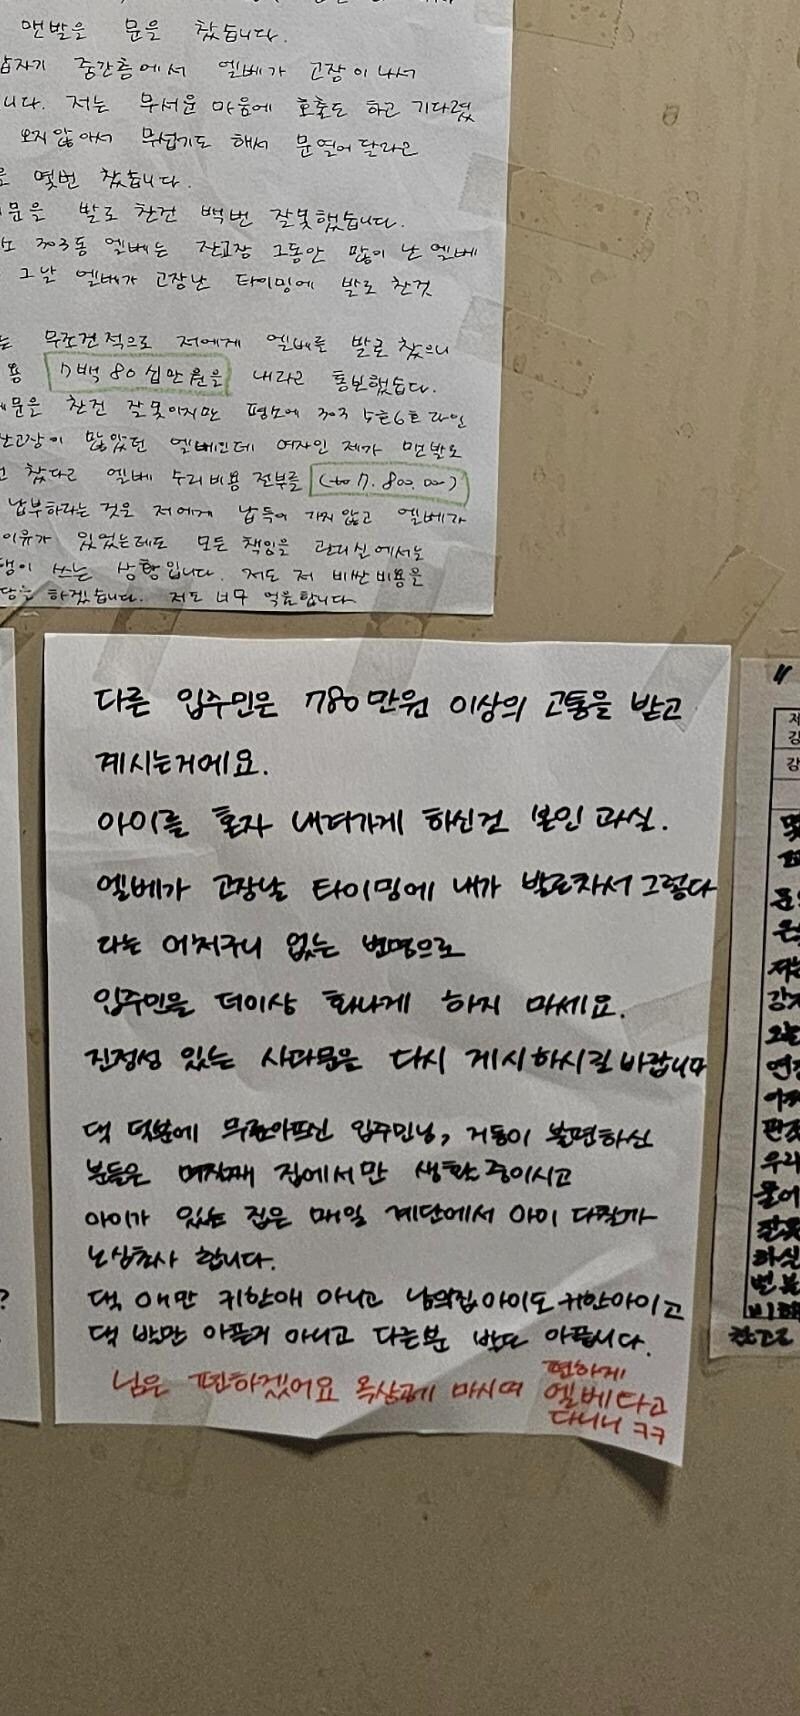 맨발은 문을 찼습니다.
갑자기 중간층에서 엘베가 고장이 나서
니다. 저는 무서운 마음에 호출도 하고 기다렸
오지않아서 무섭기도 해서 문열어 달라고
몇번 찼습니다.
문을 발로 찬건 백번 잘못했습니다.
303동 엘베는 잔고장 그동안 많이 난 엘베
그날 엘베가 고장난 타이밍에 발로 찬것
는 무조건적으로 저에게 엘베를 발로 찼으니
용 7백80십만원을 내라고 통보했습다.
문을 찬건 잘못이지만 평소에 303 5호6호 라인
잔고장이 많았던 엘베인데 여자인 제가 맨발로
찼다고 엘베 수리비용 전부를
납부하라는 것은 저에게 납득이 가지 않고 엘베가
이유가 있었는데도 모든 책임을 관리실에서는
쓰는 상황입니다. 저도 저 비싼 비용을
하겠습니다. 저도 너무 억울합니다.
다른 입주민은 780만원 이상의 고통을 받고
계시는거에요.
아이를 혼자 내려가게 하신건 본인 과실.
엘베가 고장날 타이밍에 내가 발로차서 그렇다
라는 어처구니 없는 변명으로
입주민을 더이상 화나게 하지 마세요.
진정성 있는 사과문을 다시 게시하시길 바랍니다
댁 덕분에 무릎아프신 입주민님, 거동이 불편하신
분들은 며칠째 집에서만 생활중이시고
아이가 있는 집은 매일 계단에서 아이 다칠까
노심초사 합니다.
댁 애만 귀한애 아니고 남의집 아이도 귀한아이고
댁 발만 아픈거 아니고 다른분 발도 아픕니다.
님은 편하겠어요 옥상공기 마시며 편하게
엘베타고
다니니 ㅋㅋ
"
강
?
참고로